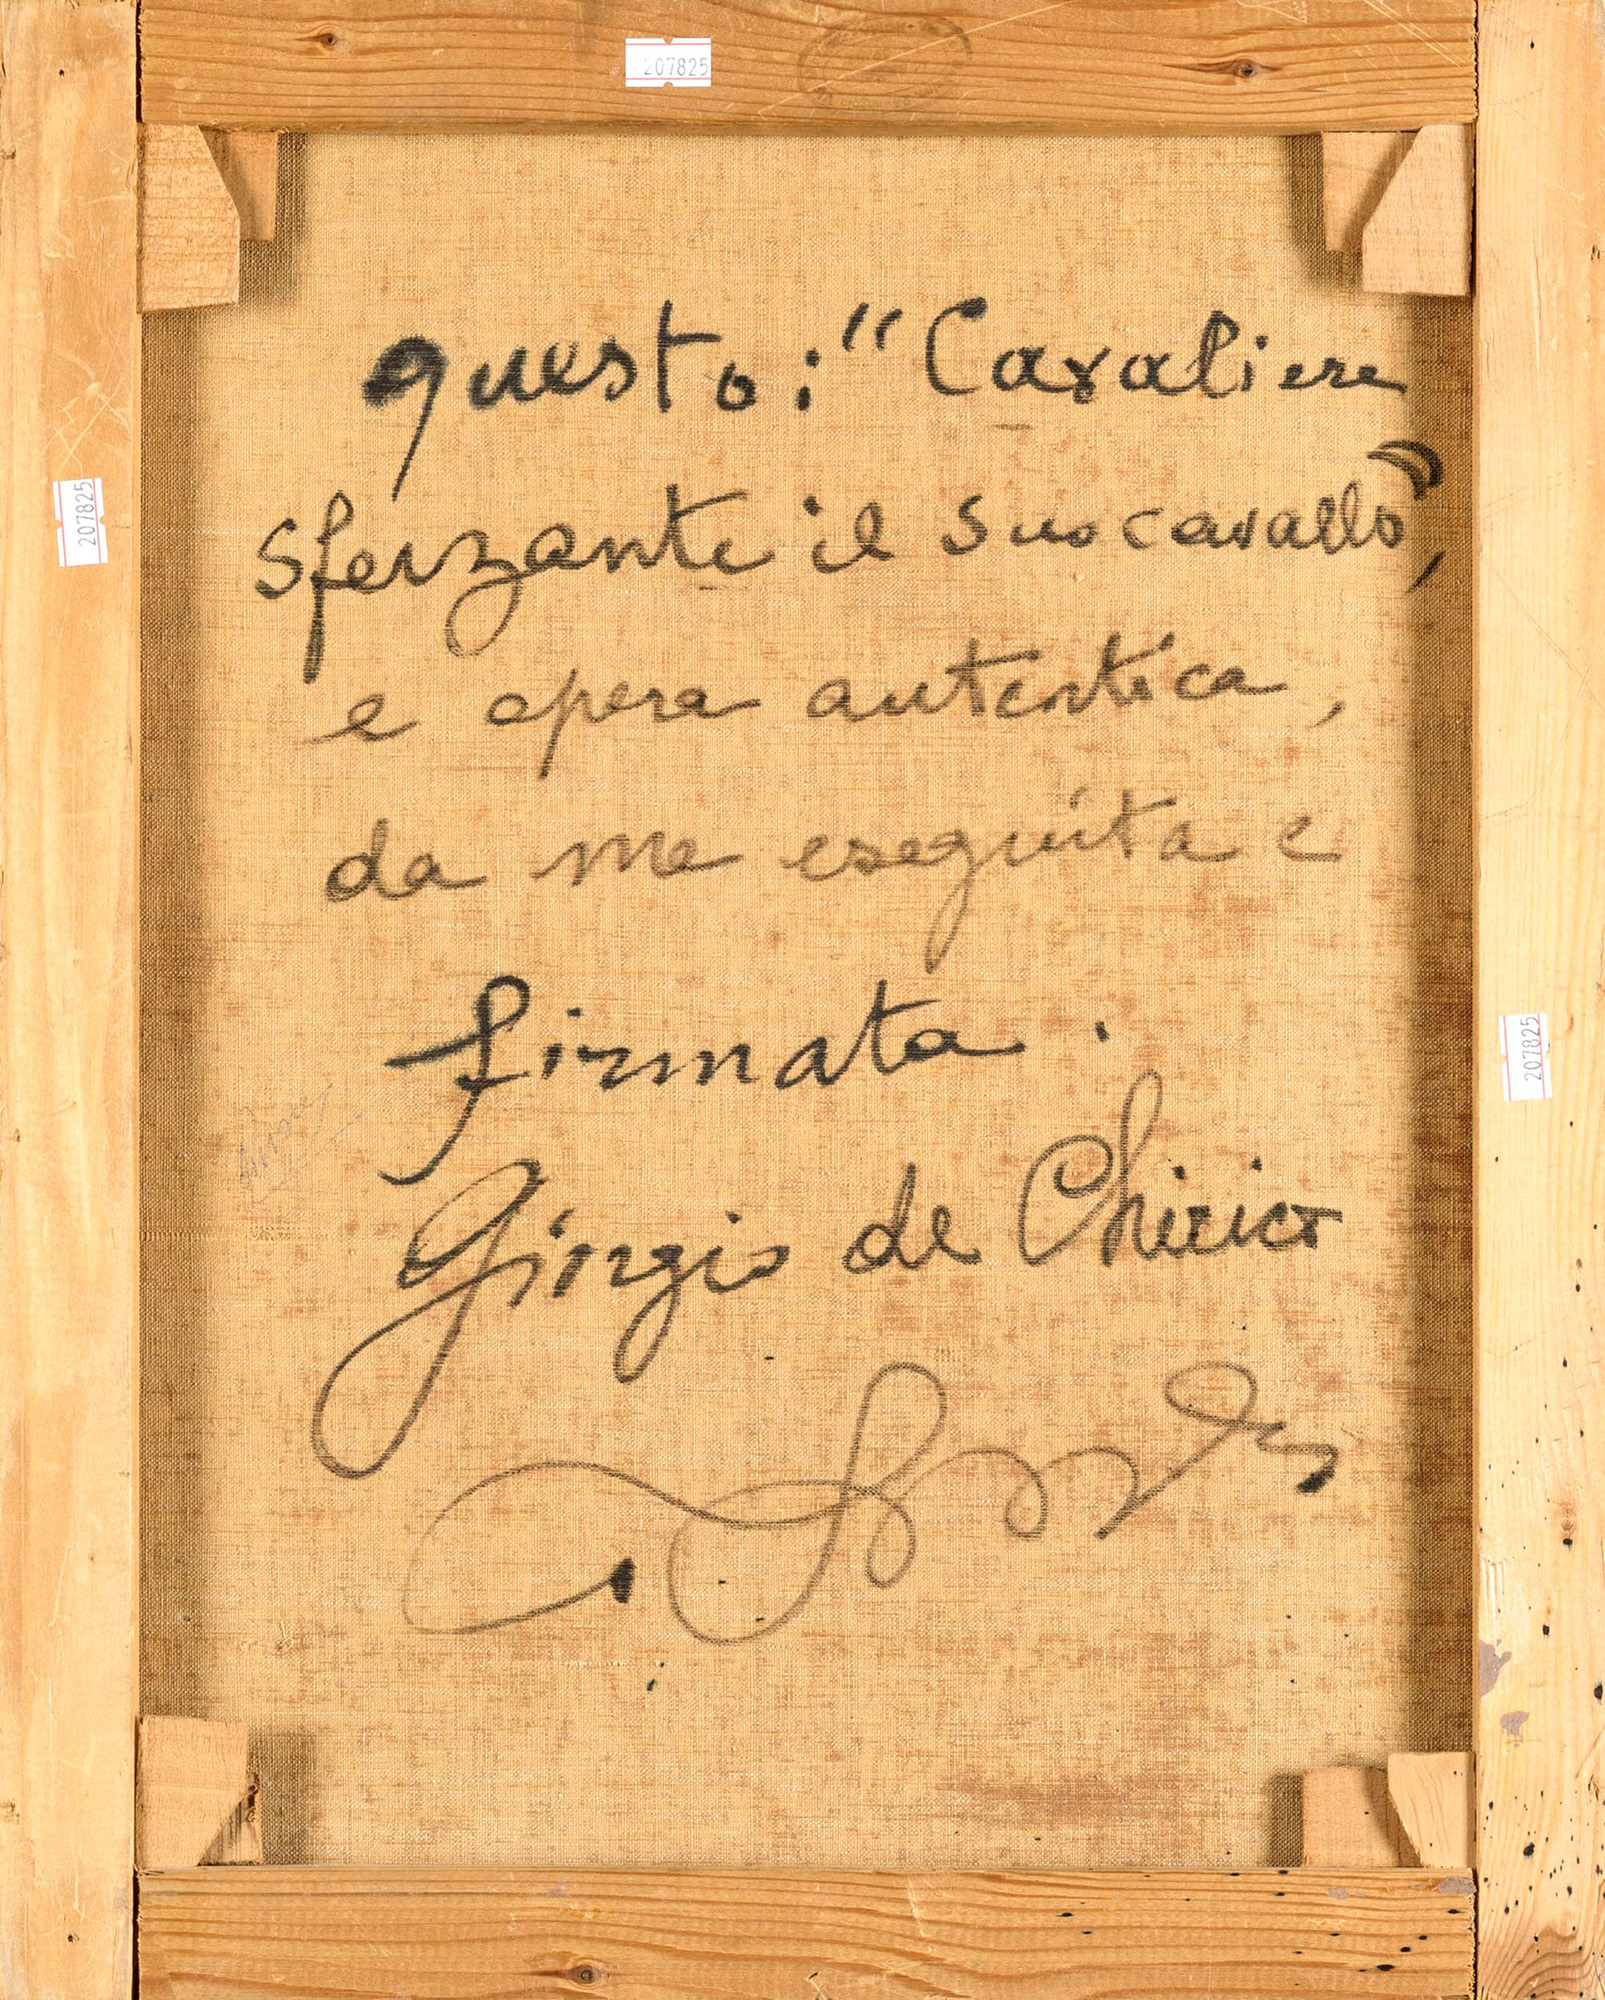 207825
207825
questo: "Cavaliere
sferzante il suo cavallo",
e opera autentica,
da me eseguita e
firmata.
Giorgio de Chirico
207825